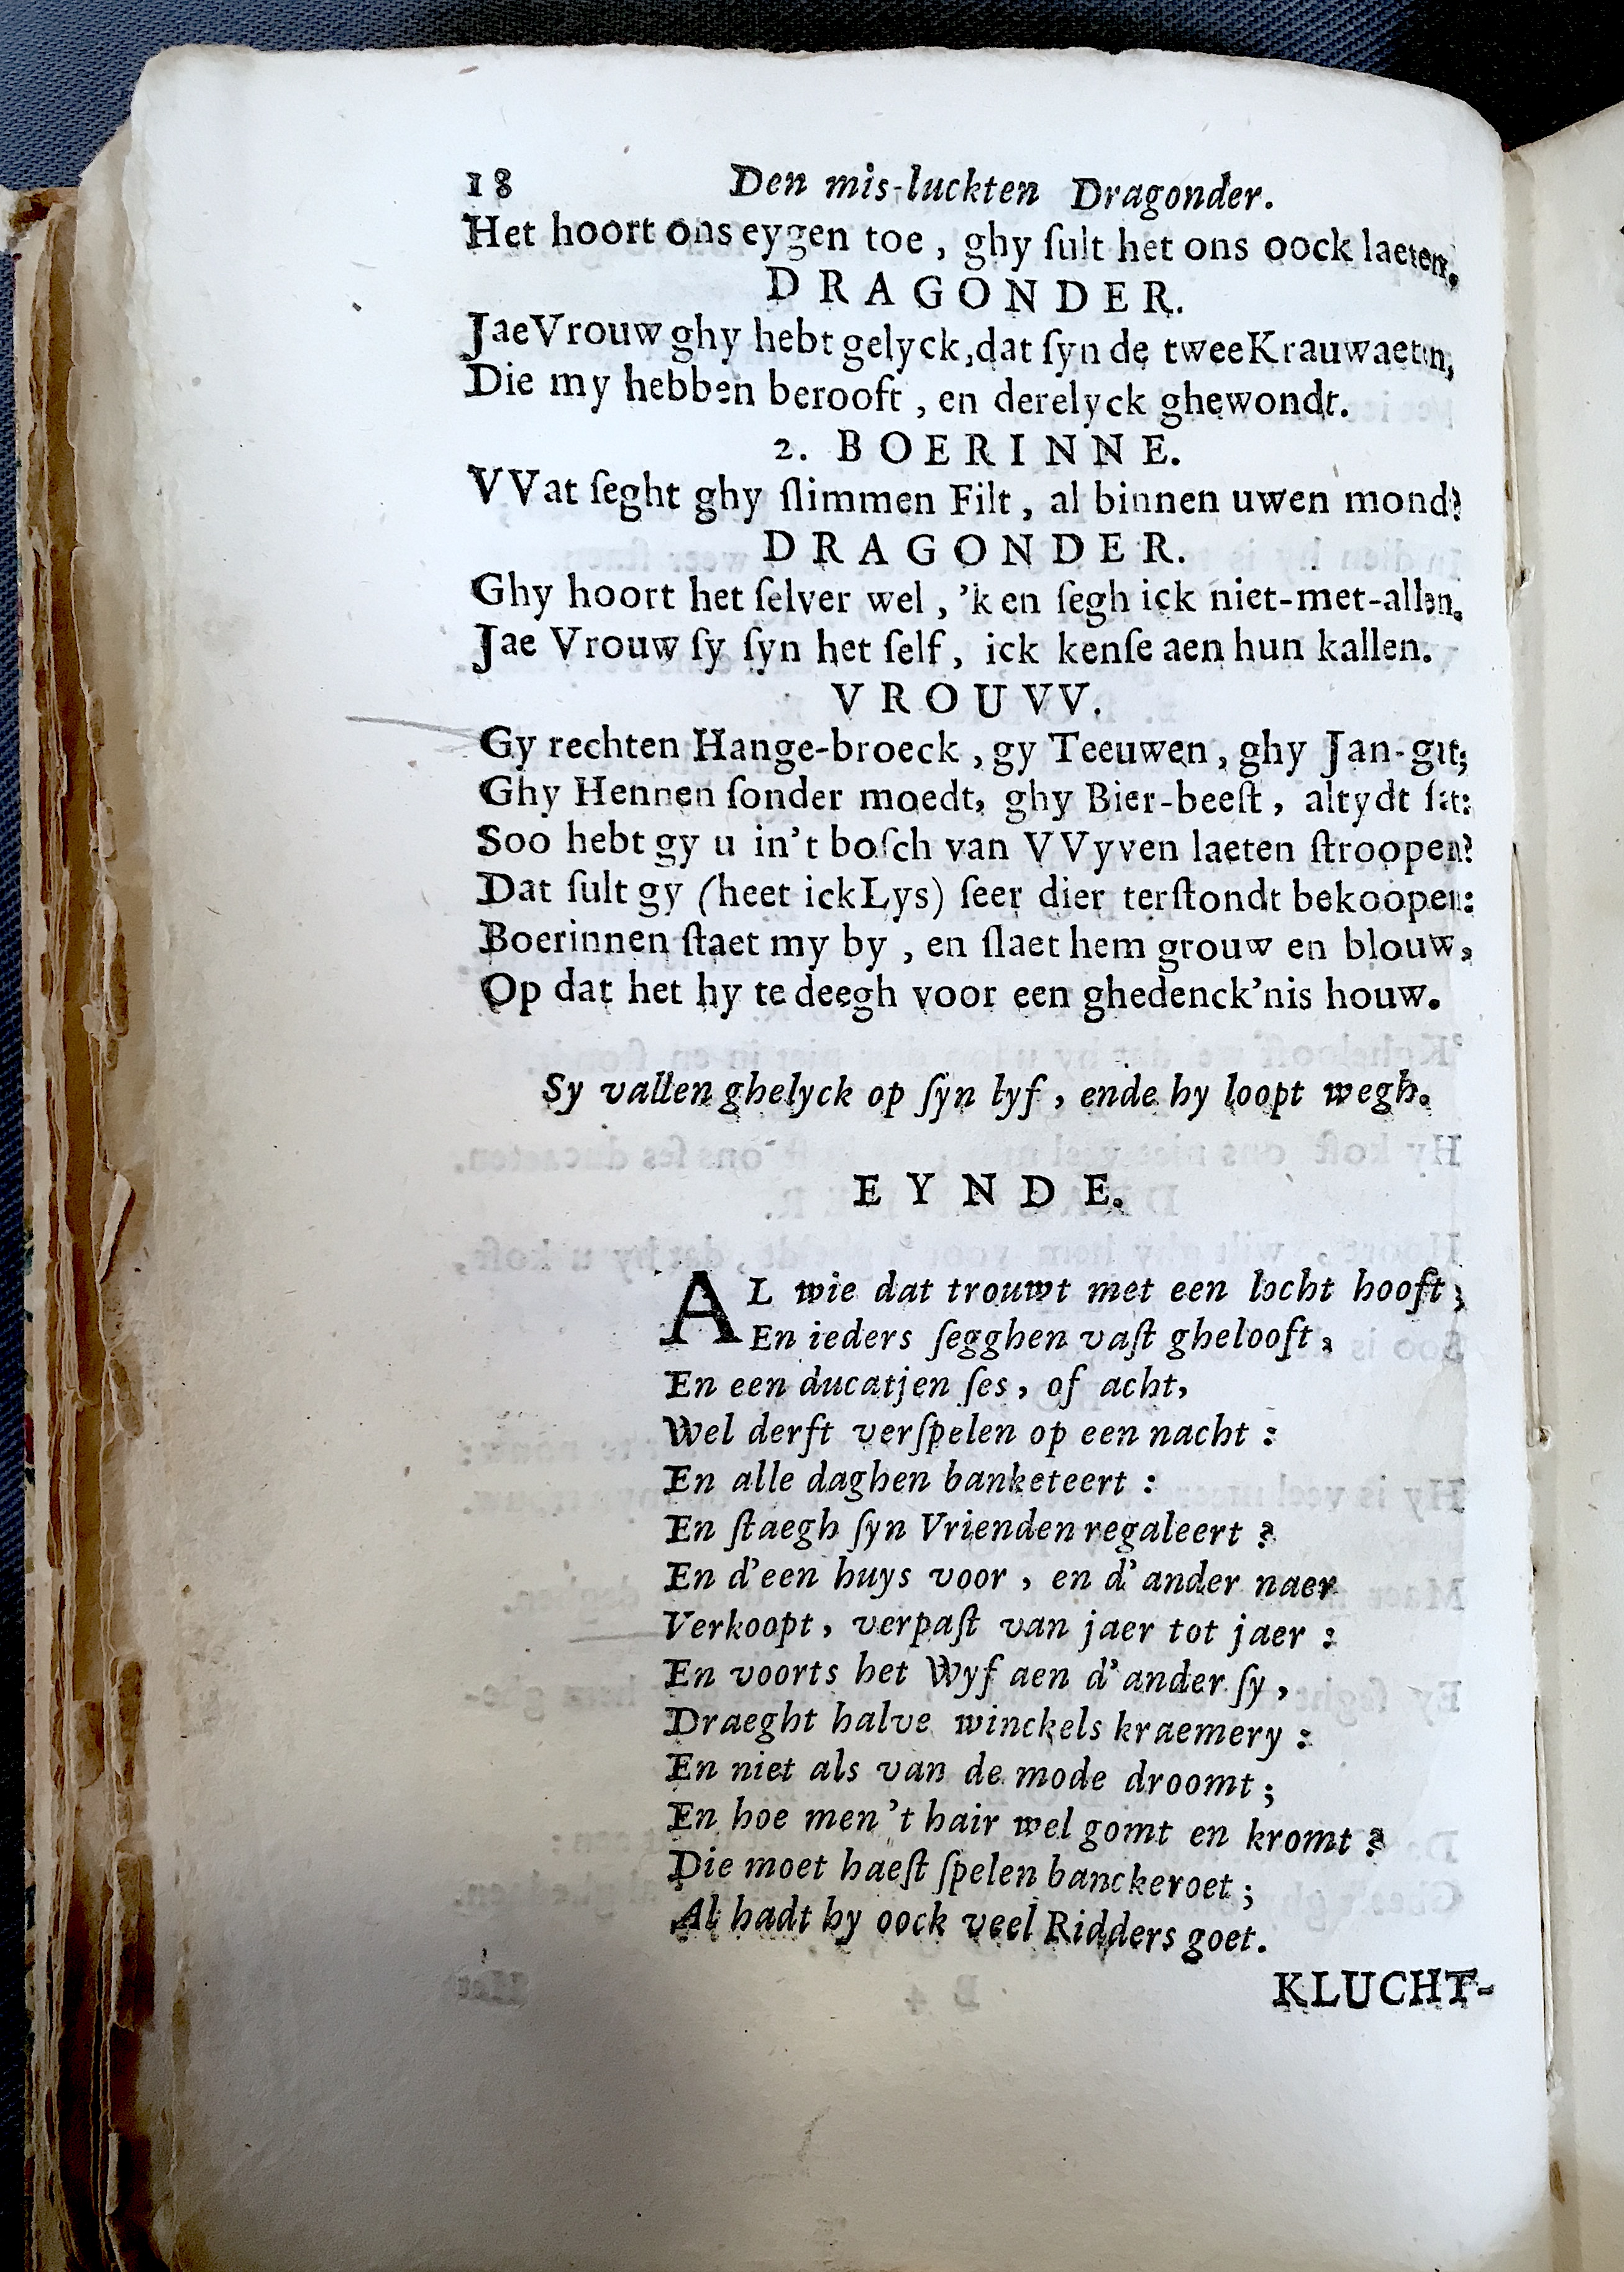 18 Den mis-luckten Dragonder.
Het hoort ons eygen toe, ghy ſult het ons oock laeten.
DRAGONDER.
Jae Vrouw ghy hebt gelyck, dat ſyn de twee Krauwaeten,
Die my hebben berooft, en derelyck ghewondt.
2. BOERINNE.
VVat ſeght ghy ſlimmen Filt, al binnen uwen mond?
DRAGONDER.
Ghy hoort het ſelver wel, 'k en ſegh ick niet-met-allen.
Jae Vrouw ſy ſyn het ſelf, ick kenſe aen hun kallen.
VROUVV.
Gy rechten Hange-broeck, gy Teeuwen, ghy Jan-git;
Ghy Hennen ſonder moedt, ghy Bier-beeſt, altydt ſit:
Soo hebt gy u in't boſch van VVyven laeten ſtroopen?
Dat ſult gy (heet ick Lys) ſeer dier terſtondt bekoopen:
Boerinnen ſtaet my by, en ſlaet hem grouw en blouw,
Op dat het hy te deegh voor een ghedenck'nis houw.
Sy vallen ghelyck op ſyn lyf, ende hy loopt wegh.
EYNDE.
AL wie dat trouwt met een locht hooft,
En ieders ſegghen vaſt ghelooft,
En een ducatjen ſes, of acht,
Wel derft verſpelen op een nacht:
En alle daghen banketeert:
En ſtaegh ſyn Vrienden regaleert?
En d'een huys voor, en d'ander naer
Verkoopt, verpaſt van jaer tot jaer:
En voorts het Wyf aen d'ander ſy,
Draeght halve winckels kraemery:
En niet als van de mode droomt;
En hoe men't hair wel gomt en kromt?
Die moet haeſt ſpelen banckeroet;
Al hadt hy oock veel Ridders goet.
KLUCHT-